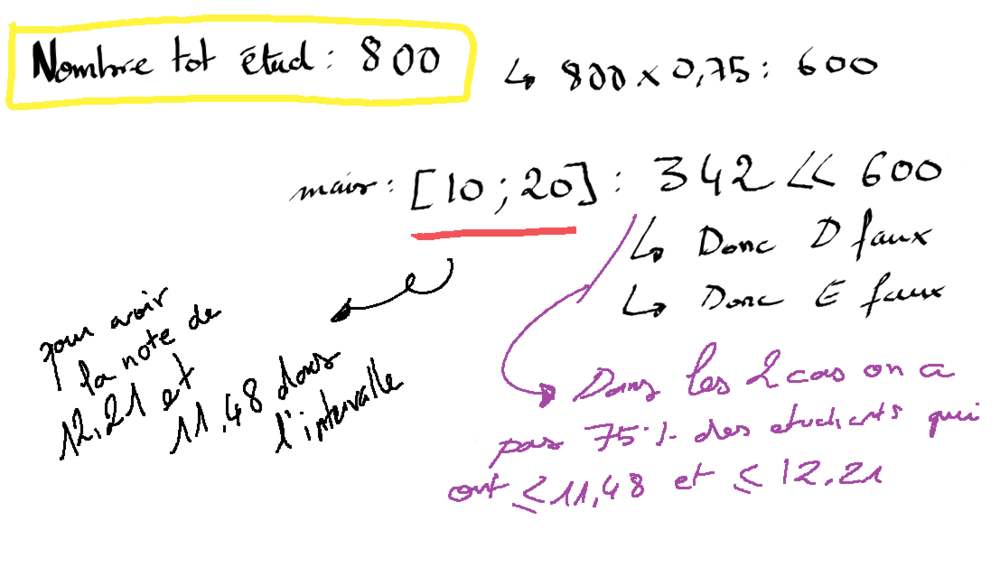 Nombre tot étud : 800
↳ 800 x 0,75 : 600
mais : [10 ; 20] : 342 << 600
↳ Donc D faux
↳ Donc E faux
pour avoir
la note de
12,21 et
11,48 dans
l'intervalle
Dans les 2 cas on a
pas 75% des etudiants qui
ont ≤ 11,48 et ≤ 12,21